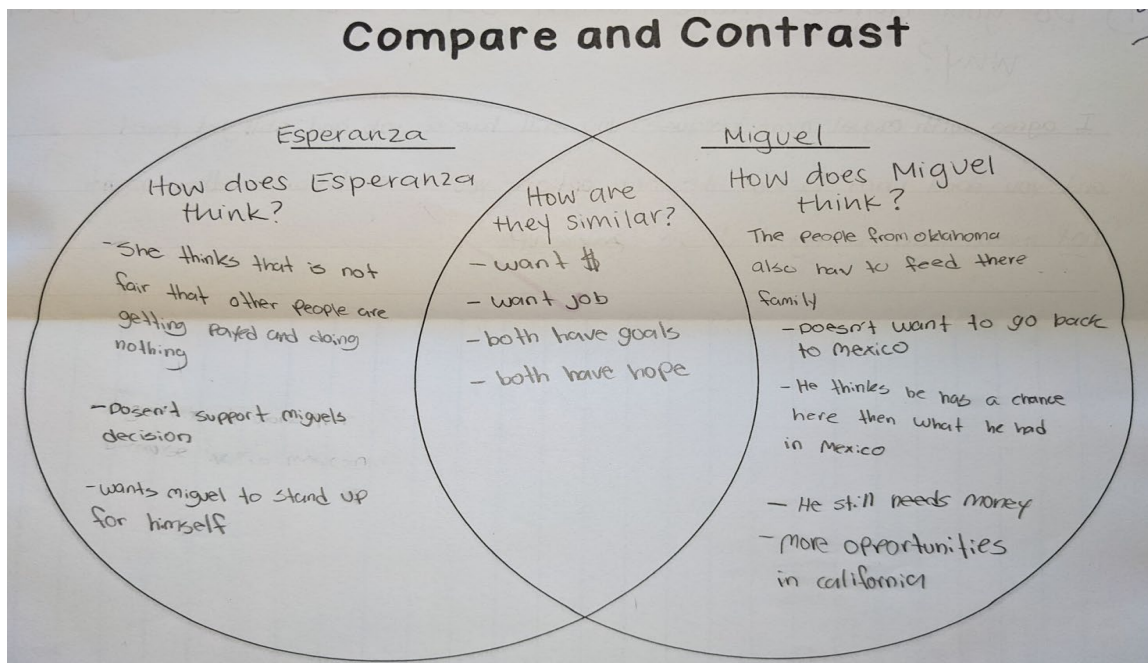 Compare and Contrast
Esperanza
How does Esperanza
think?
-She thinks that is not
fair that other people are
getting payed and doing
nothing
-Dosen't support miguels
decision
-wants miguel to stand up
for himself
How are
they similar?
- want $
- want job
- both have goals
- both have hope
Miguel
How does Miguel
think?
The people from oklahoma
also hav to feed there
family
- Doesn't want to go back
to mexico
- He thinks he has a chance
here then what he had
in Mexico
- He still needs money
- more opportunities
in california